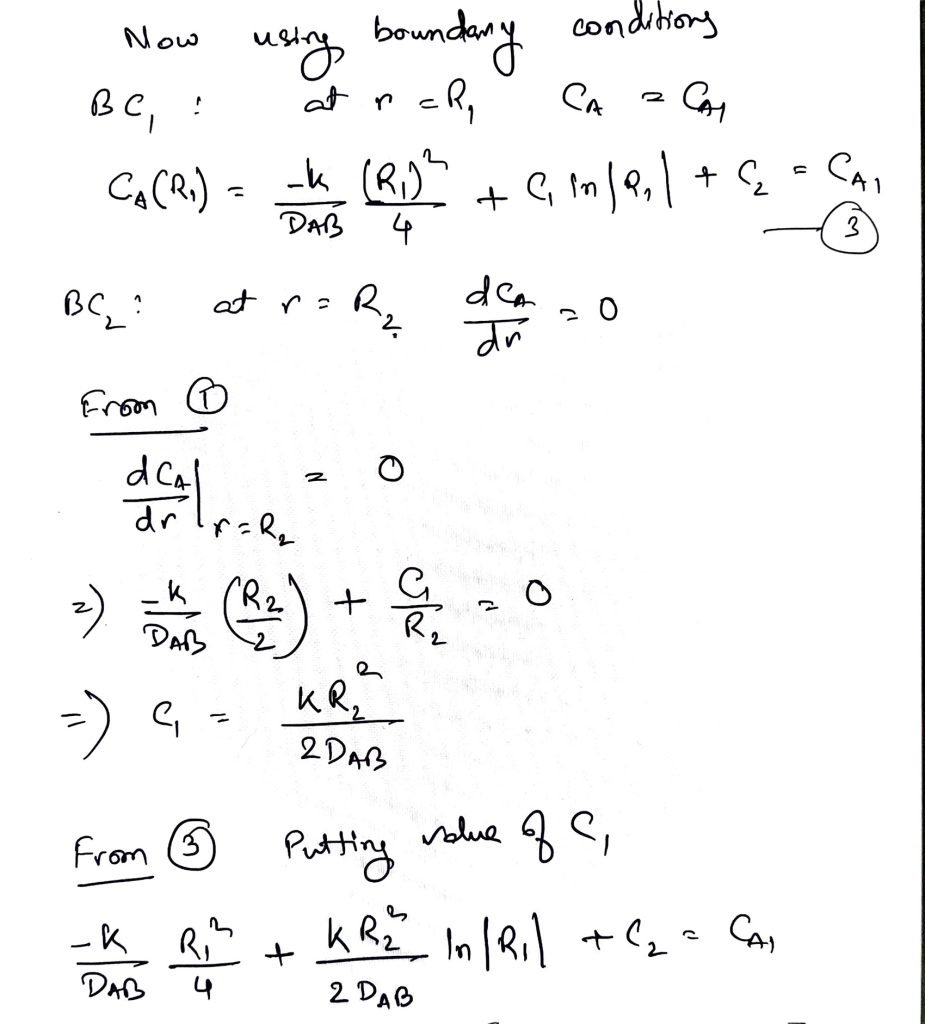 Now using boundary conditions
BC₁ : at r = R₁ C_A = C_A₁
C_A(R₁) = -k/D_AB (R₁)²/4 + C₁ ln|R₁| + C₂ = C_A₁ — ③
BC₂ : at r = R₂ dC_A/dr = 0
From ①
dC_A/dr |r=R₂ = 0
=) -k/D_AB (R₂/2) + C₁/R₂ = 0
=) C₁ = kR₂²/2D_AB
From ③ Putting value of C₁
-k/D_AB R₁²/4 + kR₂²/2D_AB ln|R₁| + C₂ = C_A₁